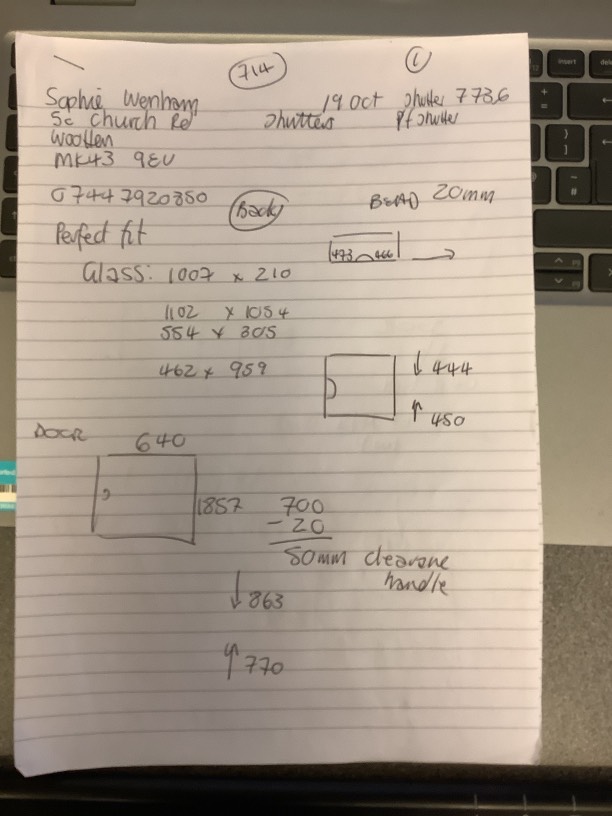 714 1
Sophie Wenham 19 Oct Shutter 7736
5c Church Rd Shutters Pf Shutter
Wootten
MK43 9EU
07447920350 Back BEAD 20mm
Perfect fit
473 466
Glass: 1007 x 210
1102 x 1054
554 x 305
462 x 959 ↓ 444
↑ 450
DOOR 640
1857 700
- 20
50mm clearane
handle
↓ 863
↑ 770
insert